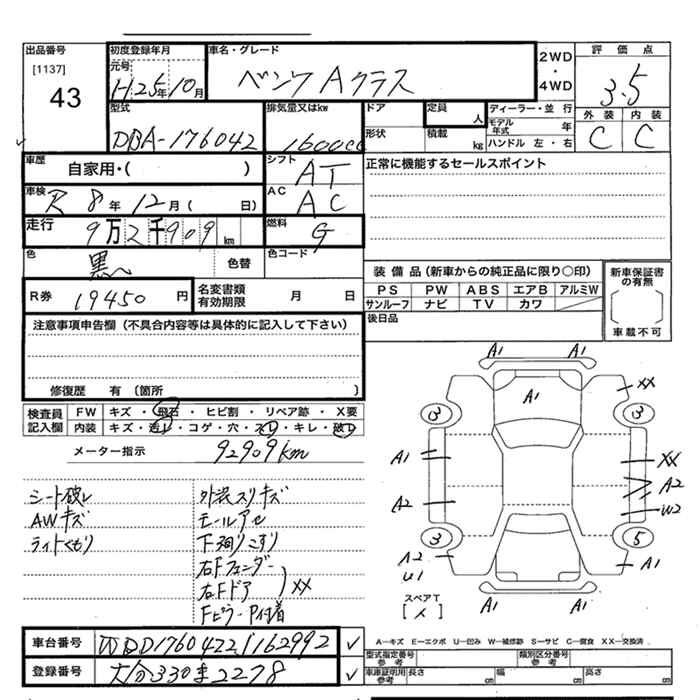 出品番号 初度登録年月 車名・グレード 2WD・4WD 評価点
[1137] 元号
43 H25年10月 ベンツ Aクラス 3.5
型式 排気量又はkw ドア 定員 人 ディーラー・並行 外装 内装
DBA-176042 1600cc 形状 積載 kg モデル年式 年 ハンドル 左・右 C C
車歴 自家用・( ) シフト AT 正常に機能するセールスポイント
車検 R 8年 12月( 日) AC AC
走行 9万2千909km 燃料 G
色 黒 色替 色コード
装備品(新車からの純正品に限り○印) 新車保証書の有無
R券 19450円 名変書類有効期限 月 日 PS PW ABS エアB アルミW
サンルーフ ナビ TV カワ
後日品 車載不可
注意事項申告欄(不具合内容等は具体的に記入して下さい)
修復歴 有 (箇所 )
検査員記入欄 FW キズ・飛石・ヒビ割・リペア跡・X要
内装 キズ・汚レ・コゲ・穴・スレ・キレ・破レ
メーター指示 92909km
シート破レ 外装スリキズ
AWキズ モールアセ
ライトくもり 下廻りこすり
右Fフェンダー
右Fドア XX
Fピラー P付着
A1 A1
A1 XX
3 3
A1 XX
A2
A2 W2
3 5
A2 A1
U1
スペアT A1 A1
[ ]
A−キズ E−エクボ U−凹み W−補修跡 S−サビ C−腐食 XX−交換済
車台番号 WDD1760422J162992 ✓ 型式指定番号 参考 類別区分番号 参考
登録番号 大分330ま2278 ✓ 車庫証明用 参考 長さ cm 幅 cm 高さ cm